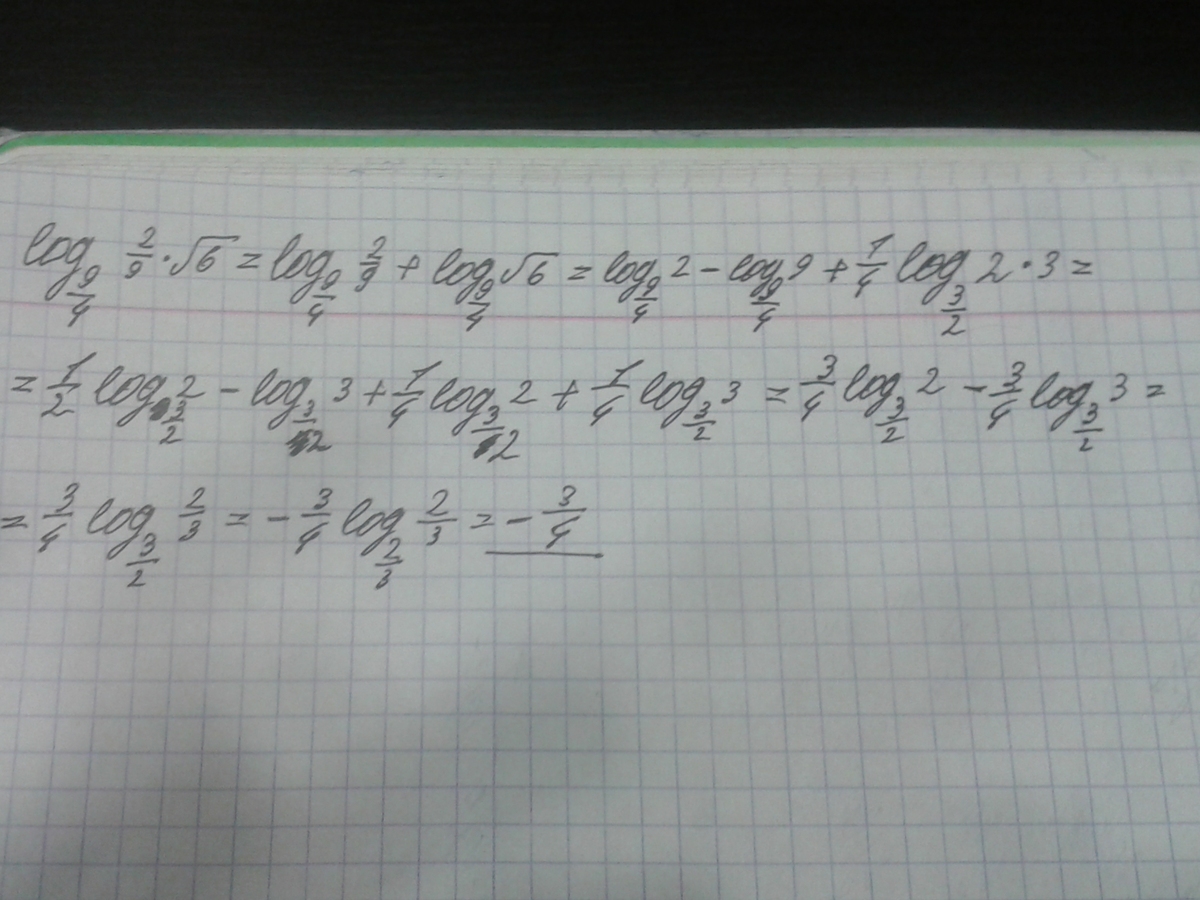 log_{9/4} 2/9 · √6 = log_{9/4} 2/9 + log_{9/4} √6 = log_{9/4} 2 − log_{9/4} 9 + 1/4 log_{3/2} 2 · 3 =
= 1/2 log_{3/2} 2 − log_{3/2} 3 + 1/4 log_{3/2} 2 + 1/4 log_{3/2} 3 = 3/4 log_{3/2} 2 − 3/4 log_{3/2} 3 =
= 3/4 log_{3/2} 2/3 = − 3/4 log_{2/3} 2/3 = − 3/4